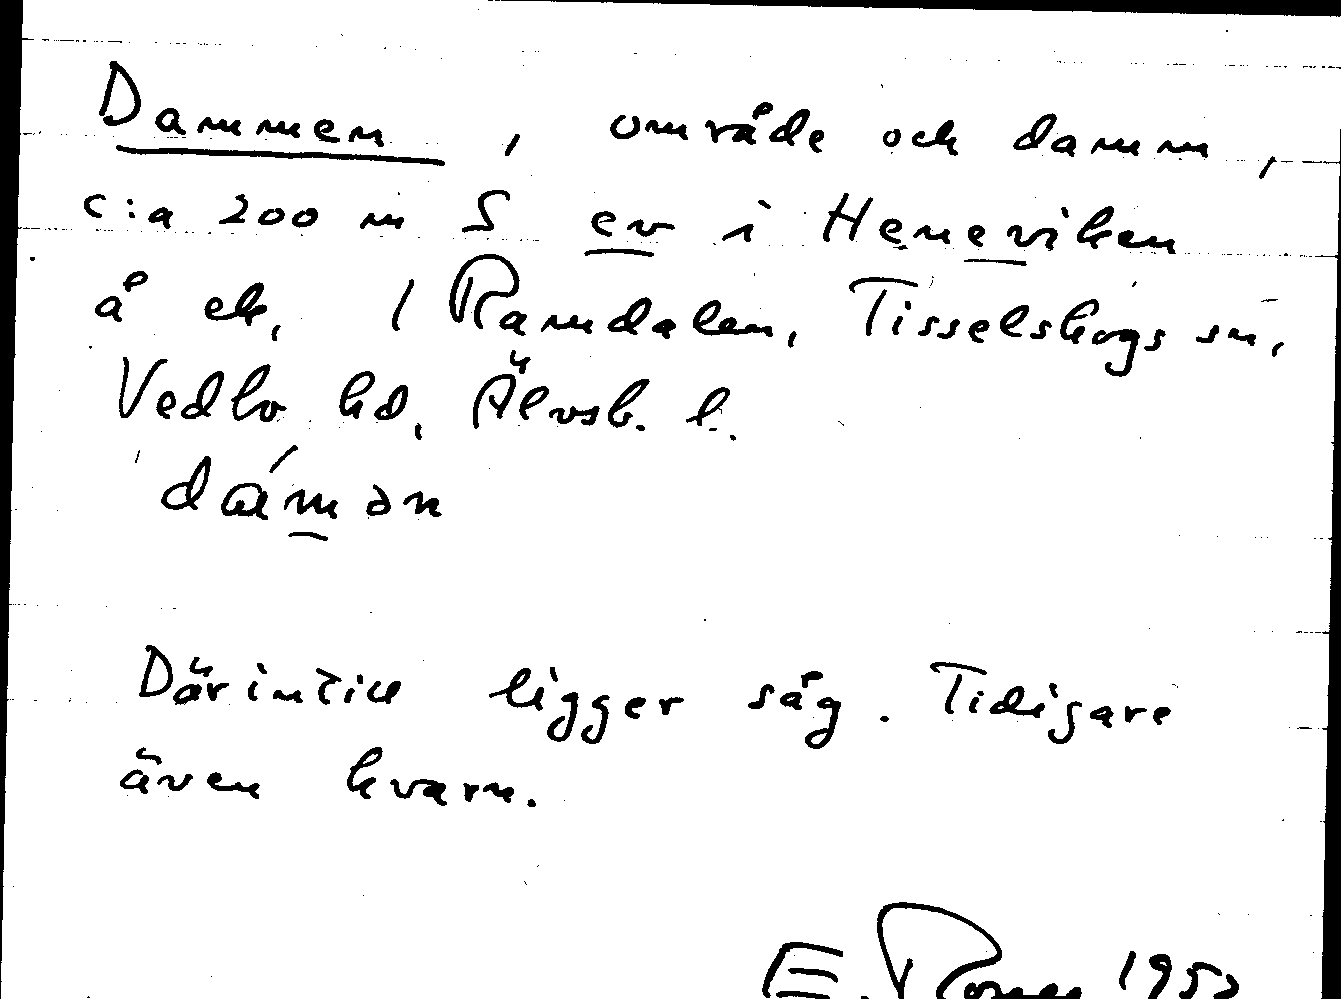 Dammen, område och damm,
c:a 200 m S ev i Heneviken
å ek, 1 Ramdalen, Tisselskogs sn,
Vedbo hd, Älvsb. l.
dámən
Därintill ligger såg. Tidigare
även kvarn.
E.